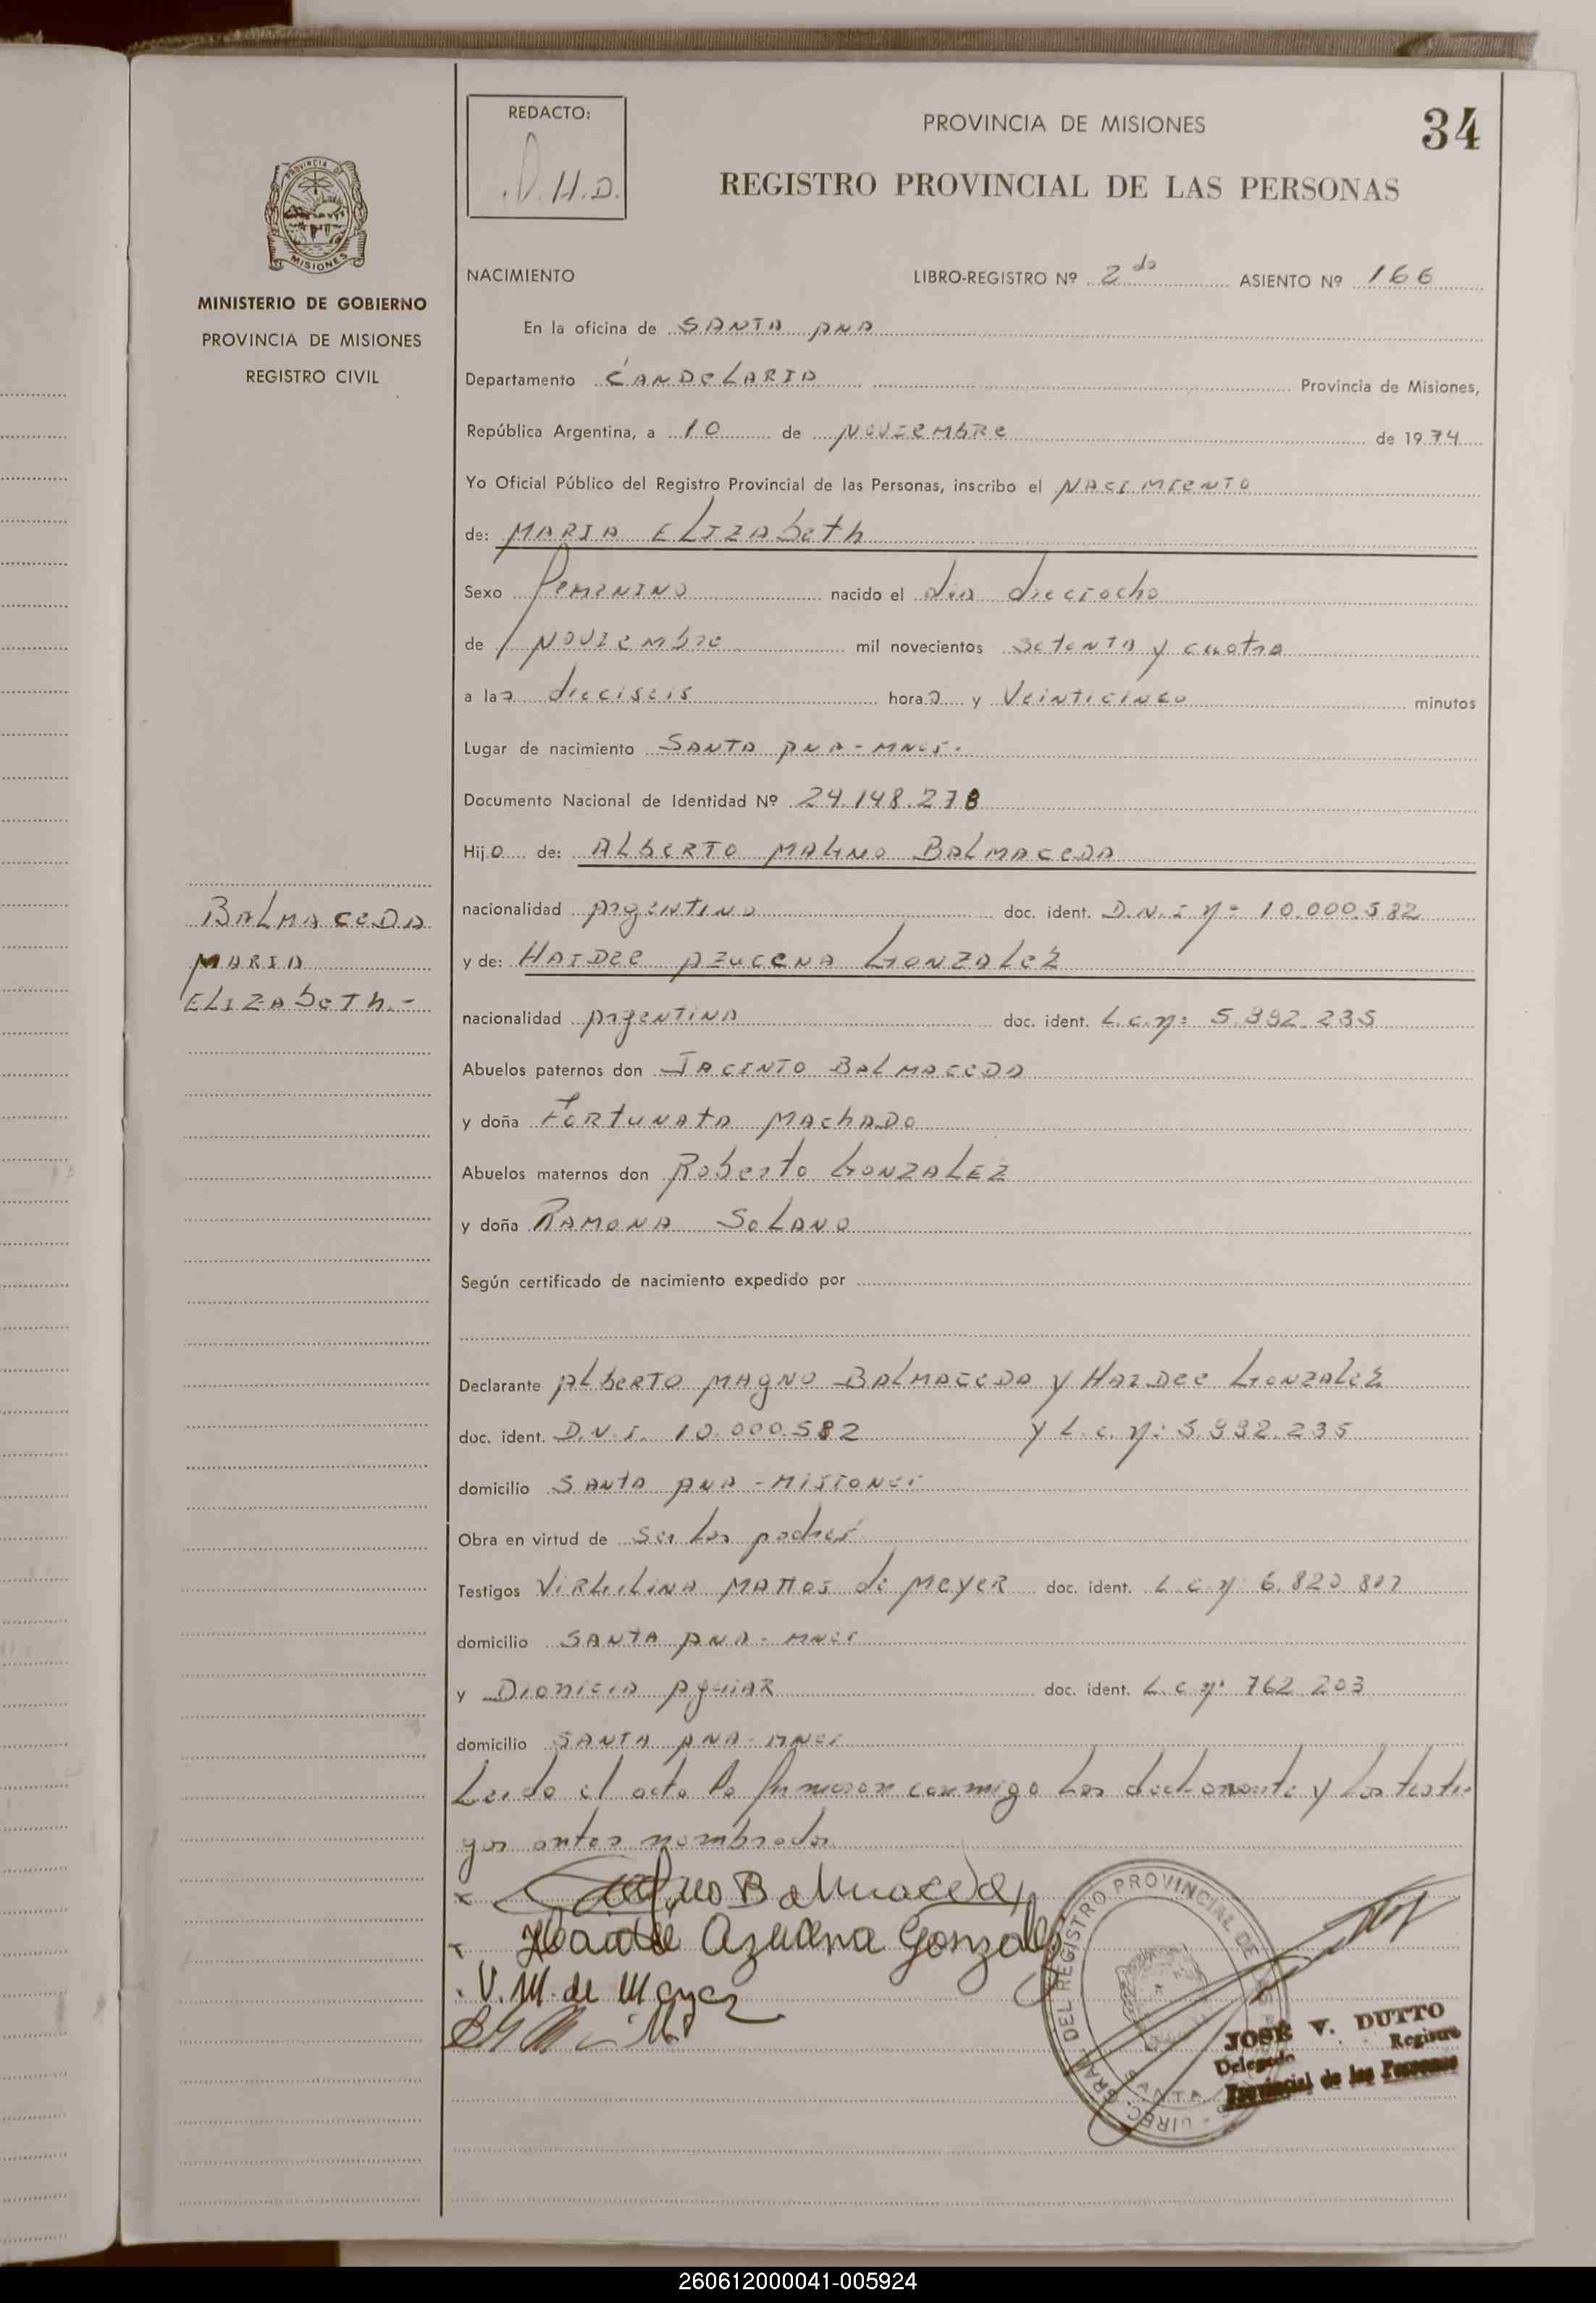 REDACTO:
.D.H.D.
PROVINCIA DE MISIONES
34
REGISTRO PROVINCIAL DE LAS PERSONAS
PROVINCIA DE
MISIONES
MINISTERIO DE GOBIERNO
PROVINCIA DE MISIONES
REGISTRO CIVIL
NACIMIENTO LIBRO-REGISTRO Nº 2do ASIENTO Nº 166
En la oficina de SANTA ANA
Departamento CANDELARIA Provincia de Misiones,
República Argentina, a 10 de NOVIEMBRE de 1974
Yo Oficial Público del Registro Provincial de las Personas, inscribo el NACIMIENTO
de: MARIA ELIZABETH
Sexo FEMENINO nacido el dia dieciocho
de NOVIEMBRE mil novecientos setenta y cuatro
a las dieciseis horas y VEINTICINCO minutos
Lugar de nacimiento SANTA ANA - MNES.
Documento Nacional de Identidad Nº 24.148.278
Hijo de: ALBERTO MAGNO BALMACEDA
BALMACEDA
MARIA
ELIZABETH.-
nacionalidad Argentino doc. ident. D.N.I Nº 10.000.582
y de: HAIDEE AZUCENA GONZALEZ
nacionalidad Argentina doc. ident. L.C.Nº: 5.992.235
Abuelos paternos don JACINTO BALMACEDA
y doña FORTUNATA MACHADO
Abuelos maternos don Roberto GONZALEZ
y doña RAMONA SOLANO
Según certificado de nacimiento expedido por
Declarante ALBERTO MAGNO BALMACEDA y HAIDEE GONZALEZ
doc. ident. D.N.I. 10.000.582 y L.C. Nº: 5.992.235
domicilio SANTA ANA - MISIONES
Obra en virtud de ser los padres
Testigos VIRGILINA MATTOS de MEYER doc. ident. L C Nº 6.820.807
domicilio SANTA ANA - MNES
y DIONICIA AGUIAR doc. ident. L.C Nº 762 203
domicilio SANTA ANA - MNES
Leido el acta la firmaron conmigo los declarante y los testi
gos antes nombrados
x Magno Balmaceda
x Haidee Azucena Gonzalez
V. M. de Meyer
DIREC. GRAL. DEL REGISTRO PROVINCIAL DE
SANTA
JOSÉ V. DUTTO
Delegado Registro
Provincial de las Personas
260612000041-005924